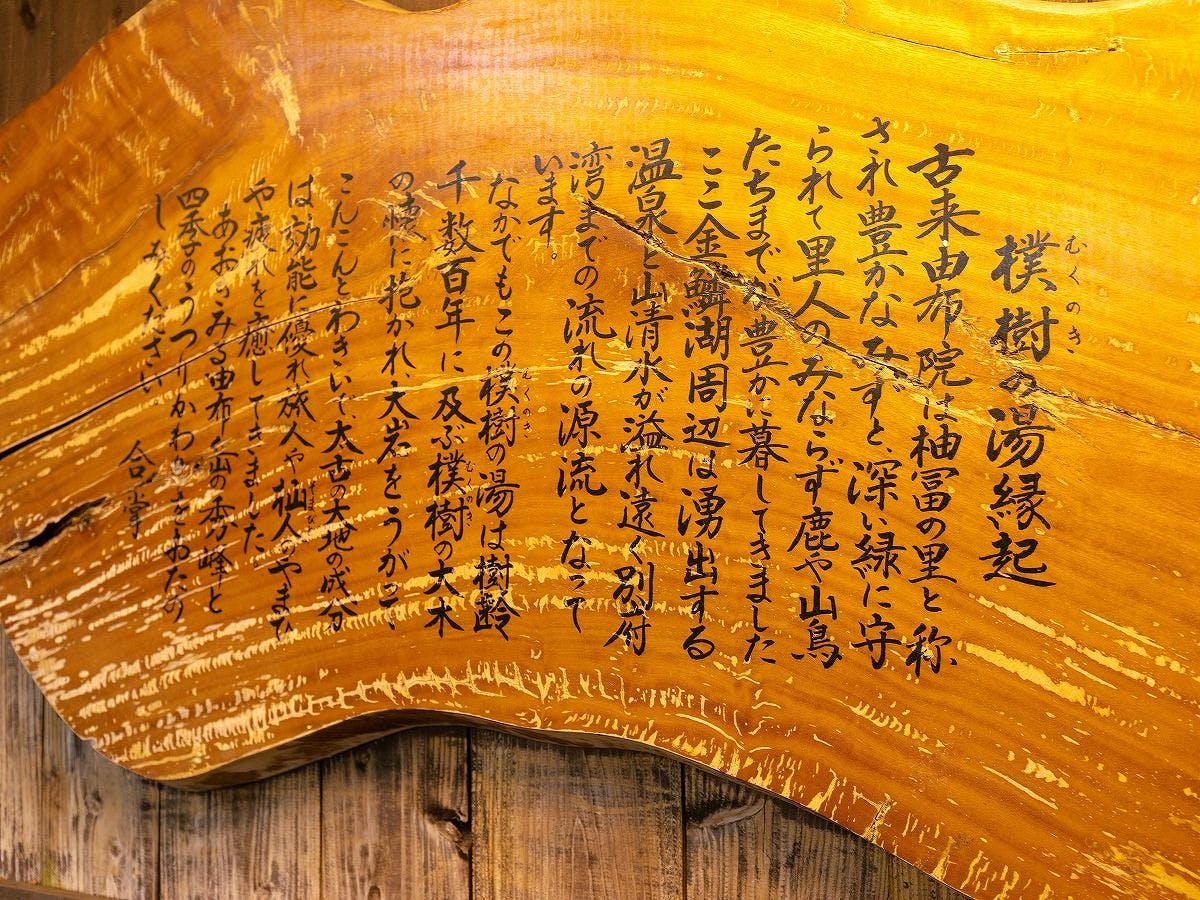 樸樹の湯縁起
むくのき
古来由布院は柚冨の里と称
され豊かなみずと、深い緑に守
られて里人のみならず鹿や山鳥
たちまでが豊かに暮してきました
ここ金鱗湖周辺は湧出する
温泉と山清水が溢れ遠く別府
湾までの流れの源流となって
います。
なかでもこの樸樹の湯は樹齢
むくのき
千数百年に及ぶ樸樹の大木
むくのき
の懐に抱かれ、大岩をうがって、
こんこんとわきいで、太古の大地の成分
は効能に優れ旅人や杣人のやまひ
や疲れを癒してきました。
あおぎみる由布ヶ岳の秀峰と
四季のうつりかわりをおたの
しみください
合掌